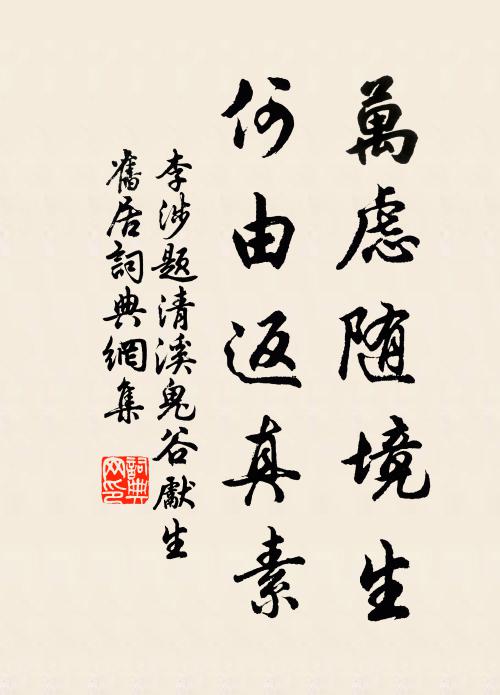 萬慮随境生
何由返真素
李涉题清溪鬼谷獻生
舊居詞典網集
詞典
网印